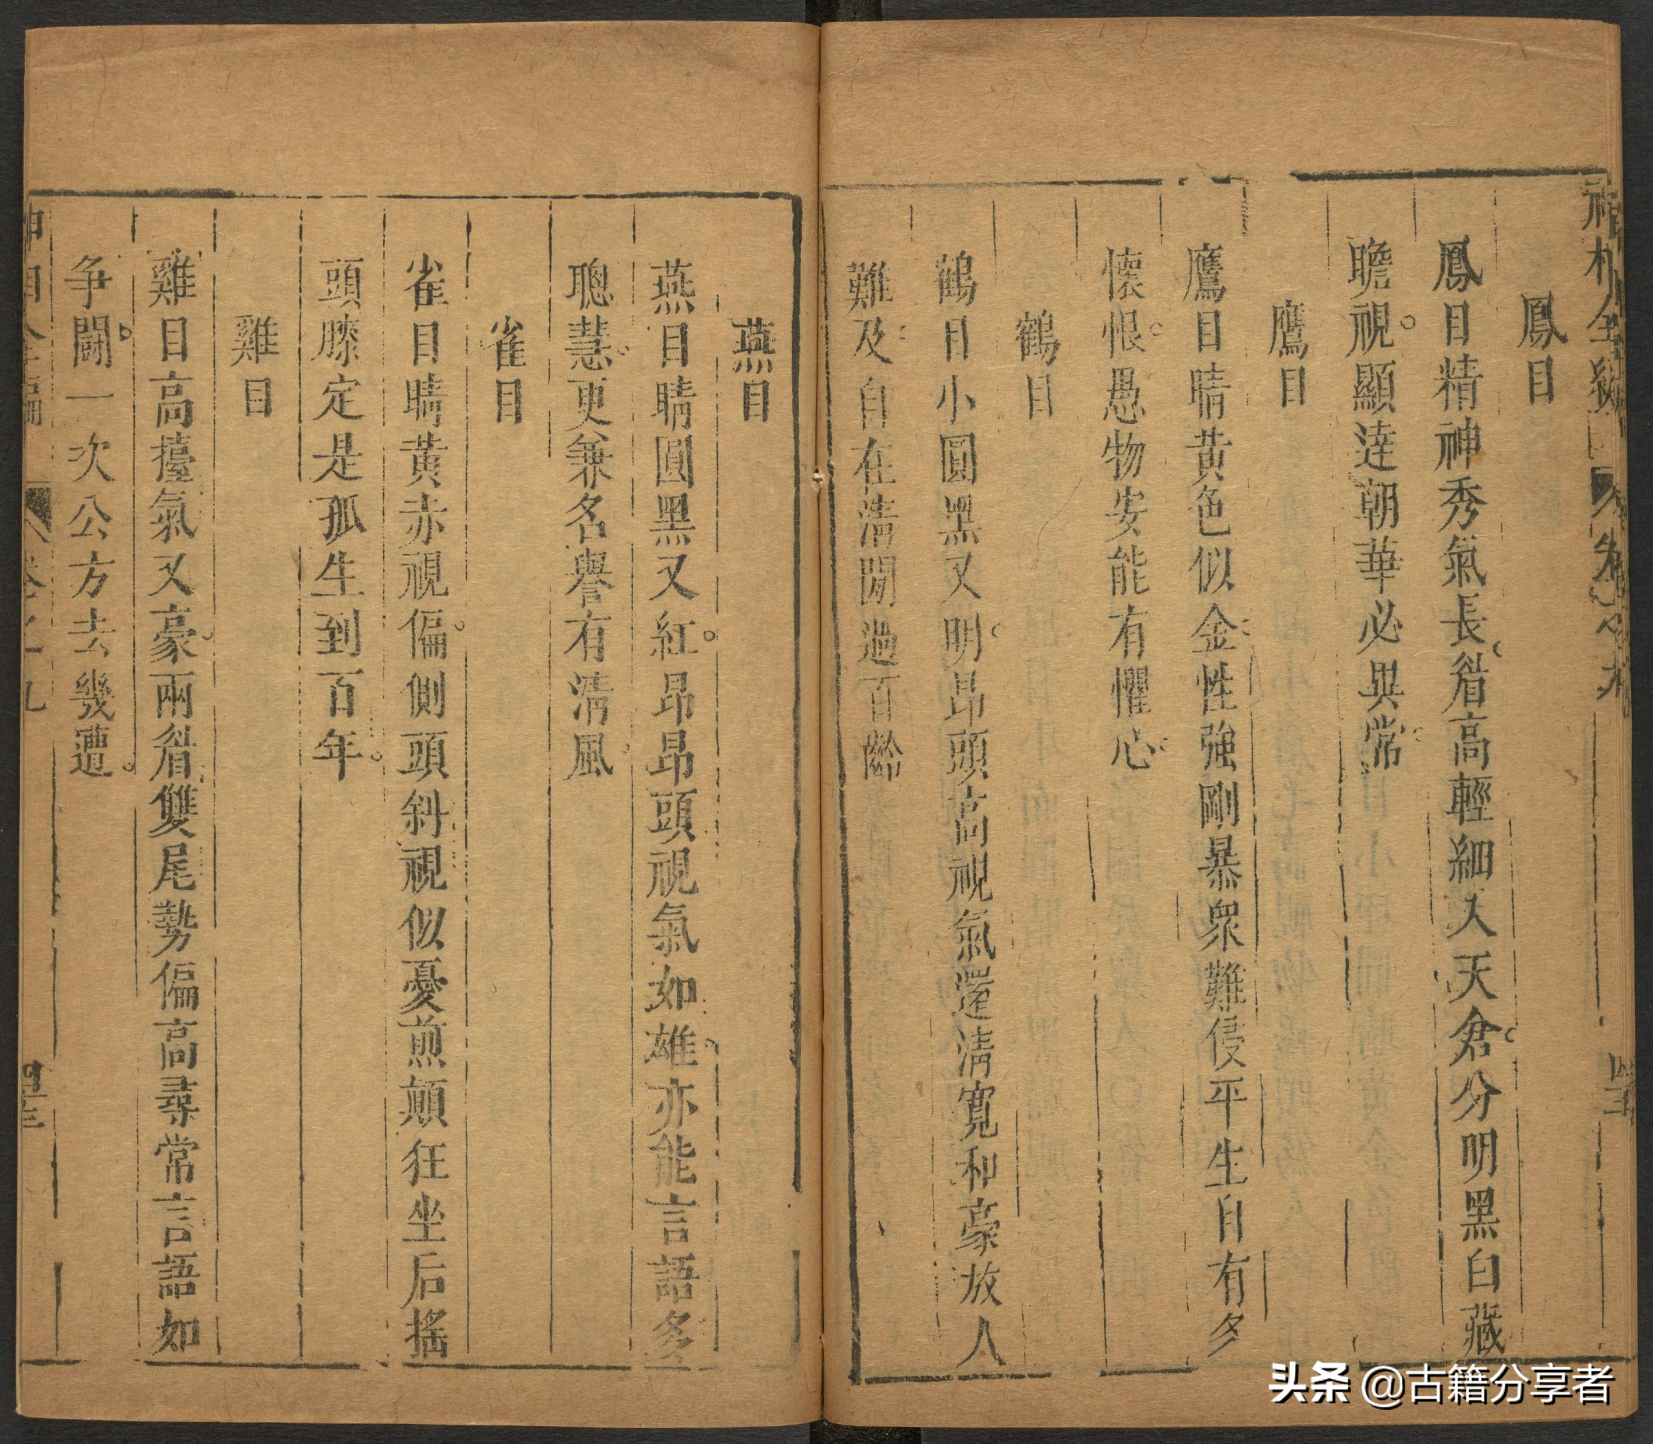 鳳目
鳳目精神秀氣長眉高輕細入天倉分明黑白藏
瞻視顯達朝華必異常
鷹目
鷹目睛黃色似金性強剛暴衆難侵平生自有多
懐恨愚物安能有懼心
鶴目
鶴目小圓黑又明昂頭高視氣還清寬和豪放人
難及自在清閒過百齡
燕目
燕目睛圓黑又紅昂昂頭視氣如雄亦能言語多
聰慧更兼名譽有清風
雀目
雀目睛黃赤視偏側頭斜視似憂煎顛狂坐后搖
頭膝定是孤生到百年
雞目
雞目高擡氣又豪兩眉雙尾勢偏高尋常言語如
争鬪一次公方去幾遭
头条 @古籍分享者